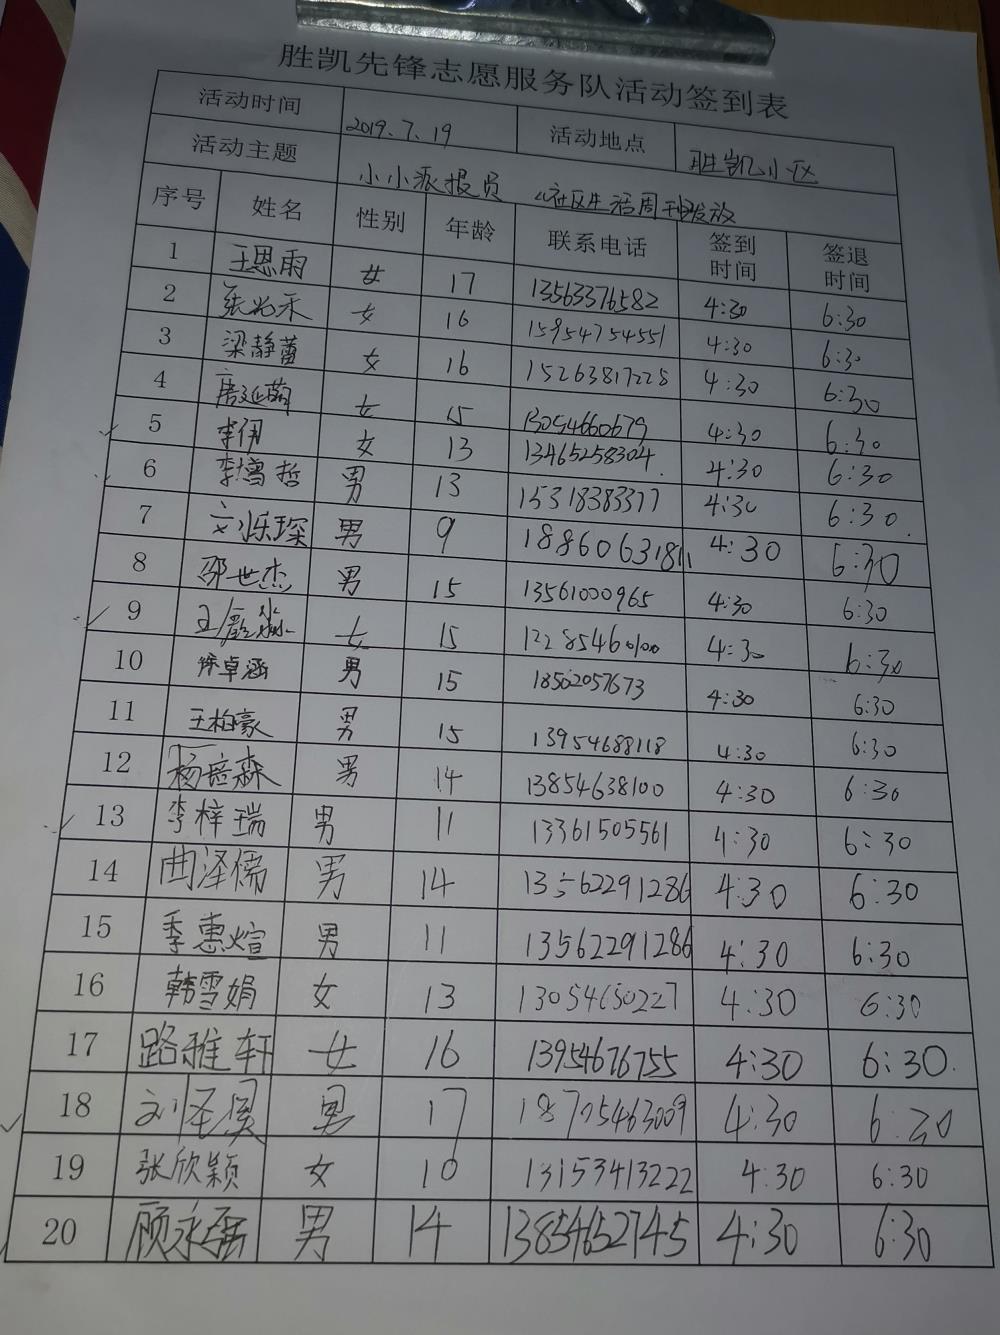 胜凯先锋志愿服务队活动签到表
活动时间 2019.7.19 活动地点 胜凯小区
活动主题 小小派报员 《社区生活周刊》发放
序号 姓名 性别 年龄 联系电话 签到时间 签退时间
1 王思雨 女 17 13563376582 4:30 6:30
2 女 16 15954754551 4:30 6:30
3 梁静蕾 女 16 15263817228 4:30 6:30
4 女 15 13054660679 4:30 6:30
5 李伊 女 13 13465258304 4:30 6:30
6 男 13 15318383377 4:30 6:30
7 刘烁琛 男 9 18860631811 4:30 6:30
8 邵世杰 男 15 13561000965 4:30 6:30
9 女 15 4:30 6:30
10 徐卓涵 男 15 18562057673 4:30 6:30
11 王柏豪 男 15 13954688118 4:30 6:30
12 杨培森 男 14 13854638100 4:30 6:30
13 李梓瑞 男 11 13361505561 4:30 6:30
14 曲泽儒 男 14 13562291286 4:30 6:30
15 季惠煊 男 11 13562291286 4:30 6:30
16 韩雪娟 女 13 13054650227 4:30 6:30
17 路雅轩 女 16 13954676755 4:30 6:30
18 男 17 18705463009 4:30 6:30
19 张欣颖 女 10 13153413222 4:30 6:30
20 顾永磊 男 14 13854652745 4:30 6:30